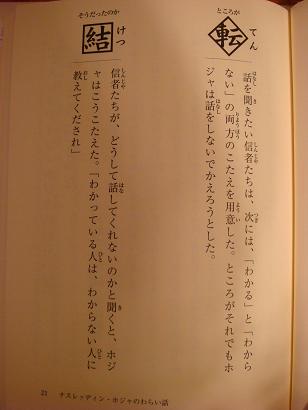 ところが
転
てん
話を聞きたい信者たちは、次には、「わかる」と「わから
ない」の両方のこたえを用意した。ところがそれでもホ
ジャは話をしないでかえろうとした。
そうだったのか
結
けつ
信者たちが、どうして話してくれないのかと聞くと、ホジ
ャはこうこたえた。「わかっている人は、わからない人に
教えてくだされ」
21 ナスレッディン・ホジャのわらい話